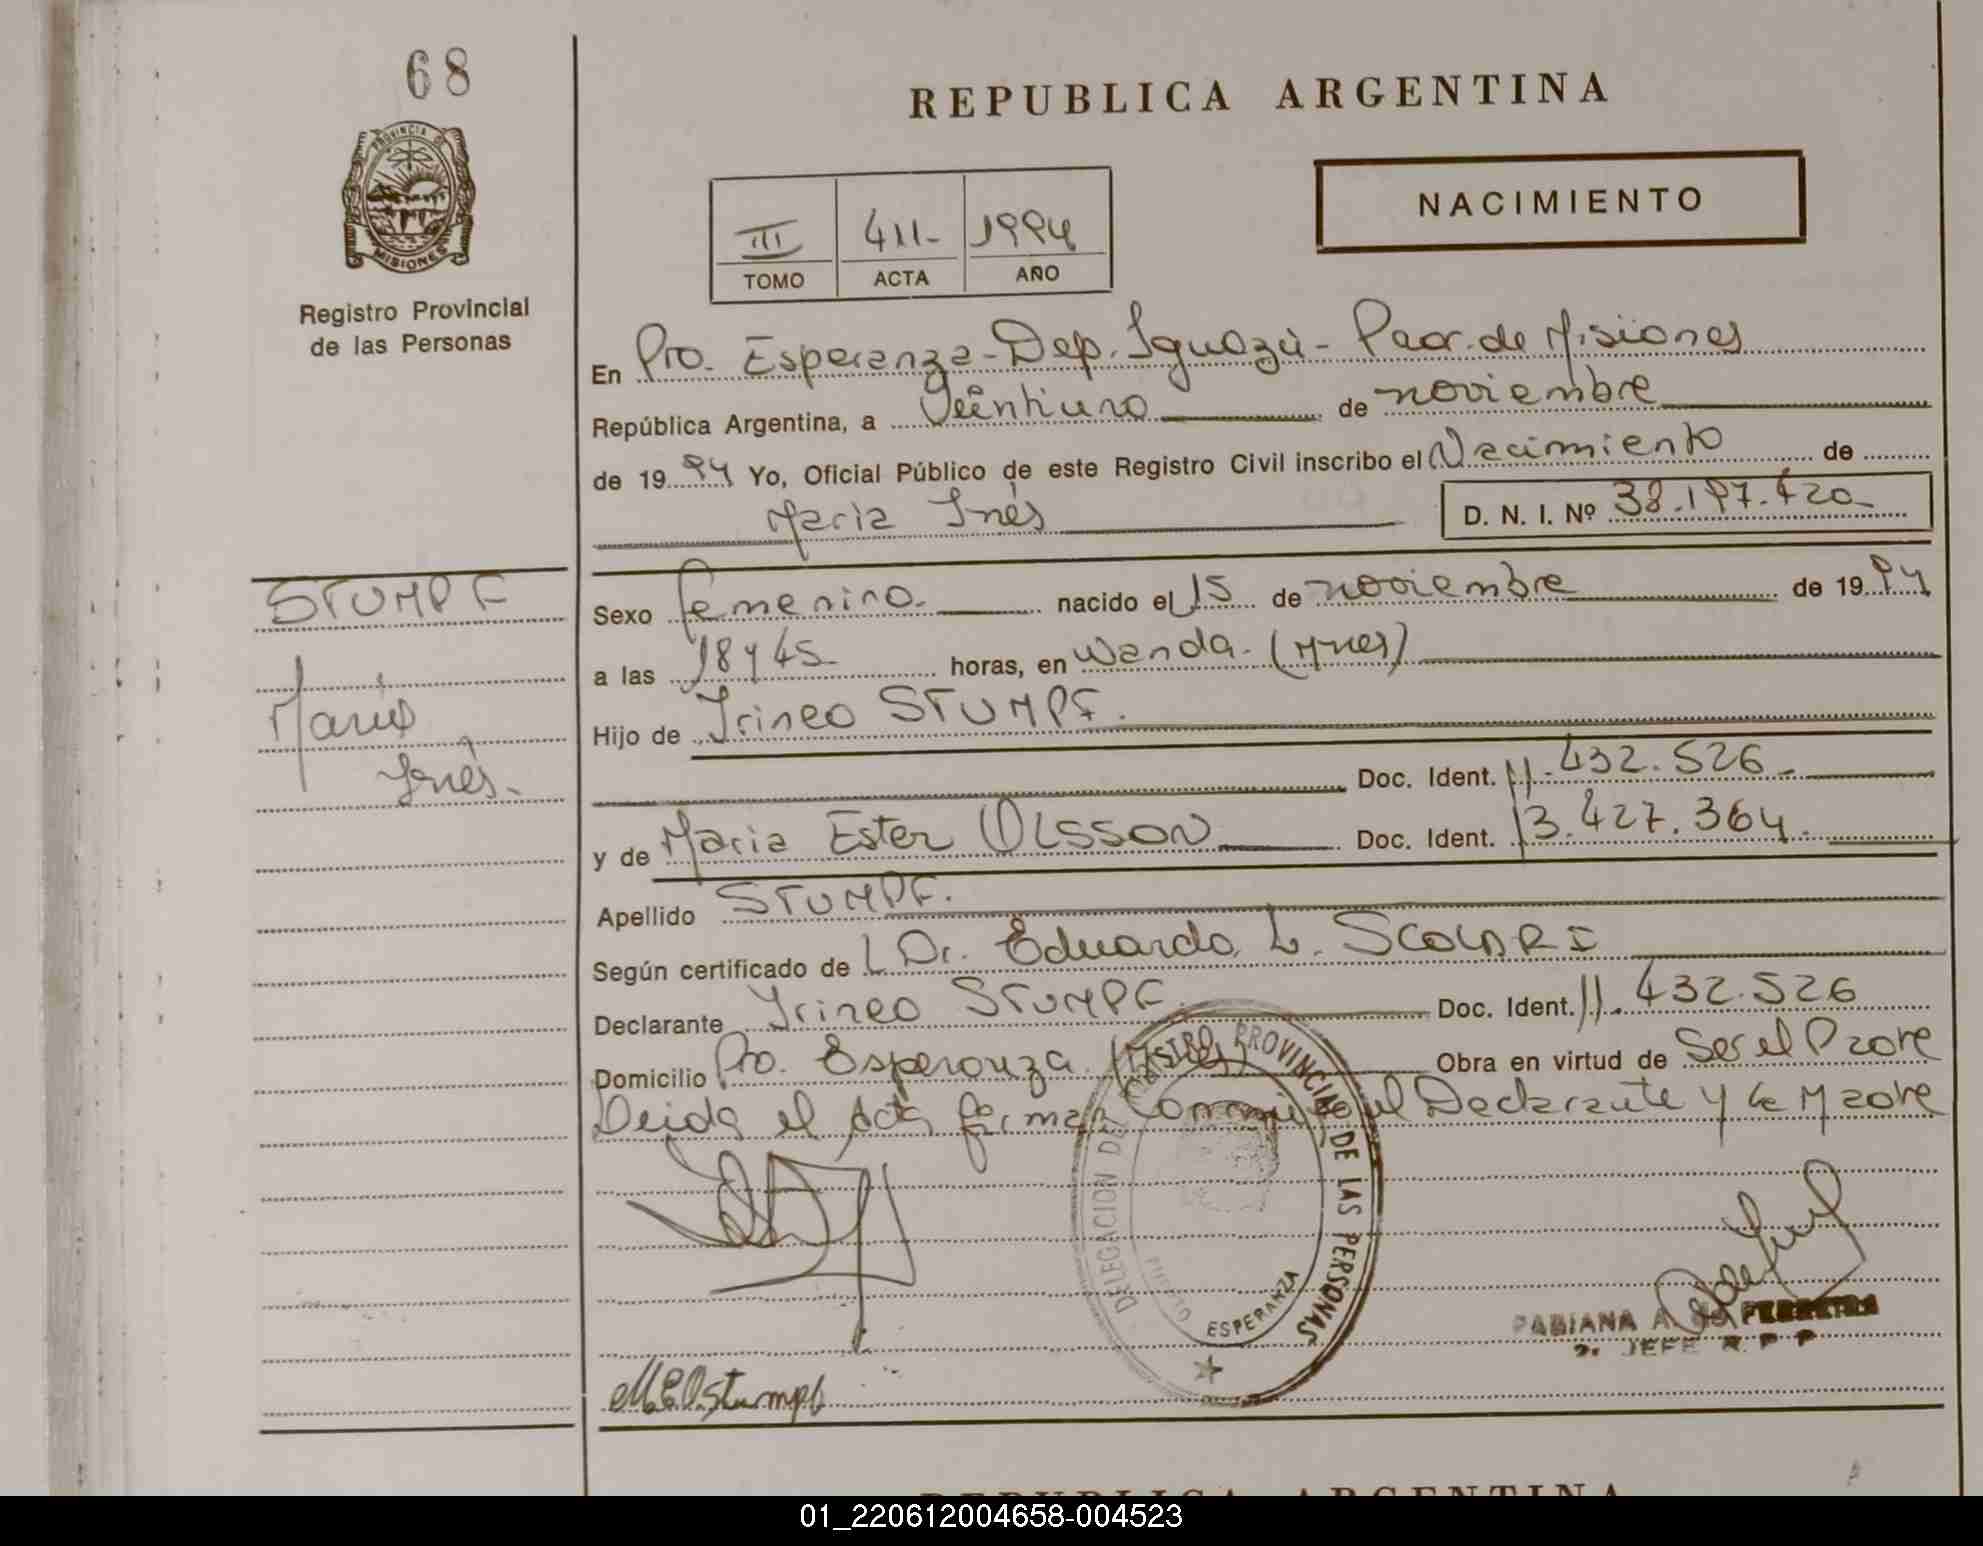 68
REPUBLICA ARGENTINA
PROVINCIA DE
MISIONES
Registro Provincial
de las Personas
NACIMIENTO
III 411- 1994
TOMO ACTA AÑO
En Pto. Esperanza-Dep. Iguazú- Pcia. de Misiones
República Argentina, a Veintiuno de noviembre
de 1994 Yo, Oficial Público de este Registro Civil inscribo el Nacimiento de
Maria Inés
D. N. I. Nº 38.197.420
STUMPF
Maria
Inés.
Sexo femenino. nacido el 15 de noviembre de 1994
a las 18 y 45 horas, en Wanda. (Mnes)
Hijo de Irineo STUMPF.
Doc. Ident. 11.432.526
y de Maria Ester OLSSON Doc. Ident. 13.427.364
Apellido STUMPF.
Según certificado de Dr. Eduardo L. SCOLARI
Declarante Irineo STUMPF. Doc. Ident. 11.432.526
Domicilio Pto. Esperanza. (Mnes) Obra en virtud de Ser el Padre
Leida el Acta firman Conmigo el Declarante y la Madre
DELEGACION DEL REGISTRO PROVINCIAL DE LAS PERSONAS
PUERTO ESPERANZA
FABIANA A. DE FERREIRA
2. JEFE R P P
M.E.O.Stumpf
REPUBLICA ARGENTINA
01_220612004658-004523